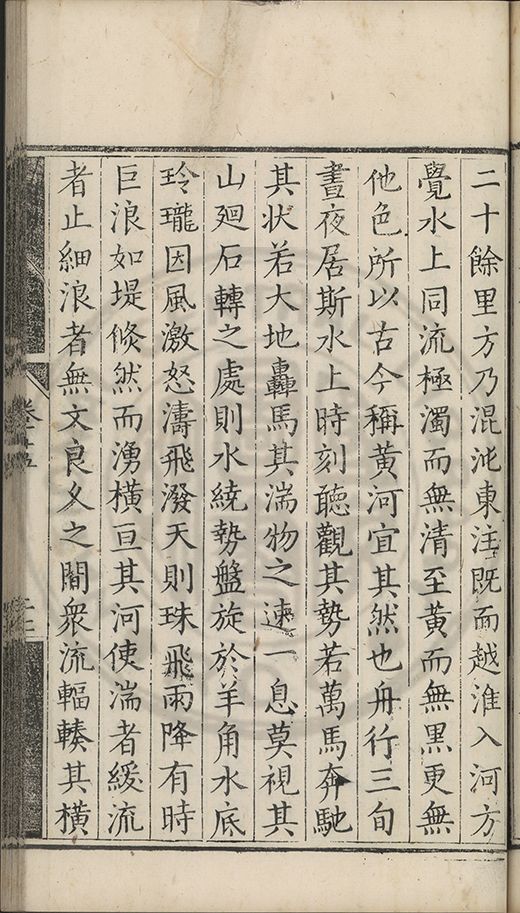 二十餘里方乃混沌東注既而越淮入河方
覺水上同流極濁而無清至黄而無黒更無
他色所以古今稱黄河宜其然也舟行三旬
晝夜居斯水上時刻聴觀其勢若萬馬奔馳
其状若大地轟馬其湍物之速一息莫視其
山廻石轉之處則水繞勢盤旋於羊角水底
玲瓏因風激怒濤飛潑天則珠飛雨降有時
巨浪如堤倏然而湧横亘其河使湍者緩流
者止細浪者無文良久之間衆流輻輳其横